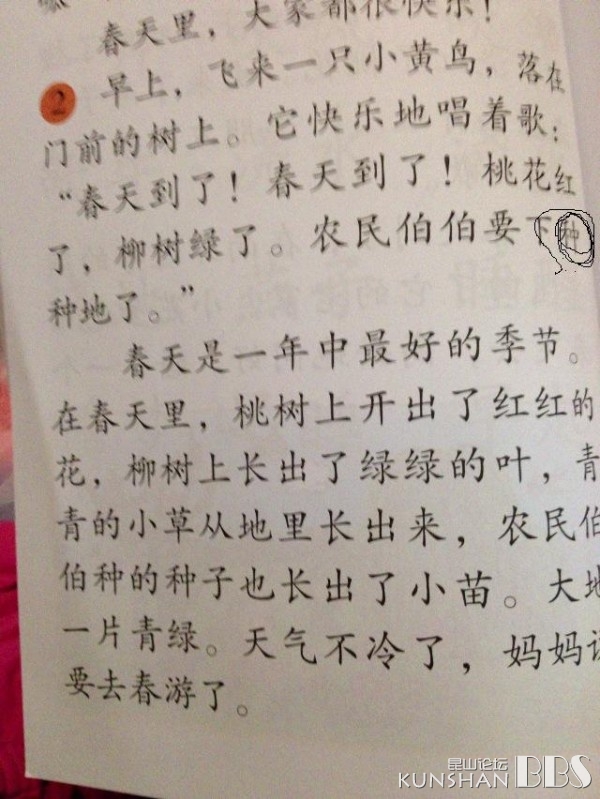 春天里，大家都很快乐！
2 早上，飞来一只小黄鸟，落在
门前的树上。它快乐地唱着歌：
“春天到了！春天到了！桃花红
了，柳树绿了。农民伯伯要下种
种地了。”
春天是一年中最好的季节。
在春天里，桃树上开出了红红的
花，柳树上长出了绿绿的叶，青
青的小草从地里长出来，农民伯
伯种的种子也长出了小苗。大地
一片青绿。天气不冷了，妈妈说
要去春游了。
昆山论坛
KUNSHAN BBS